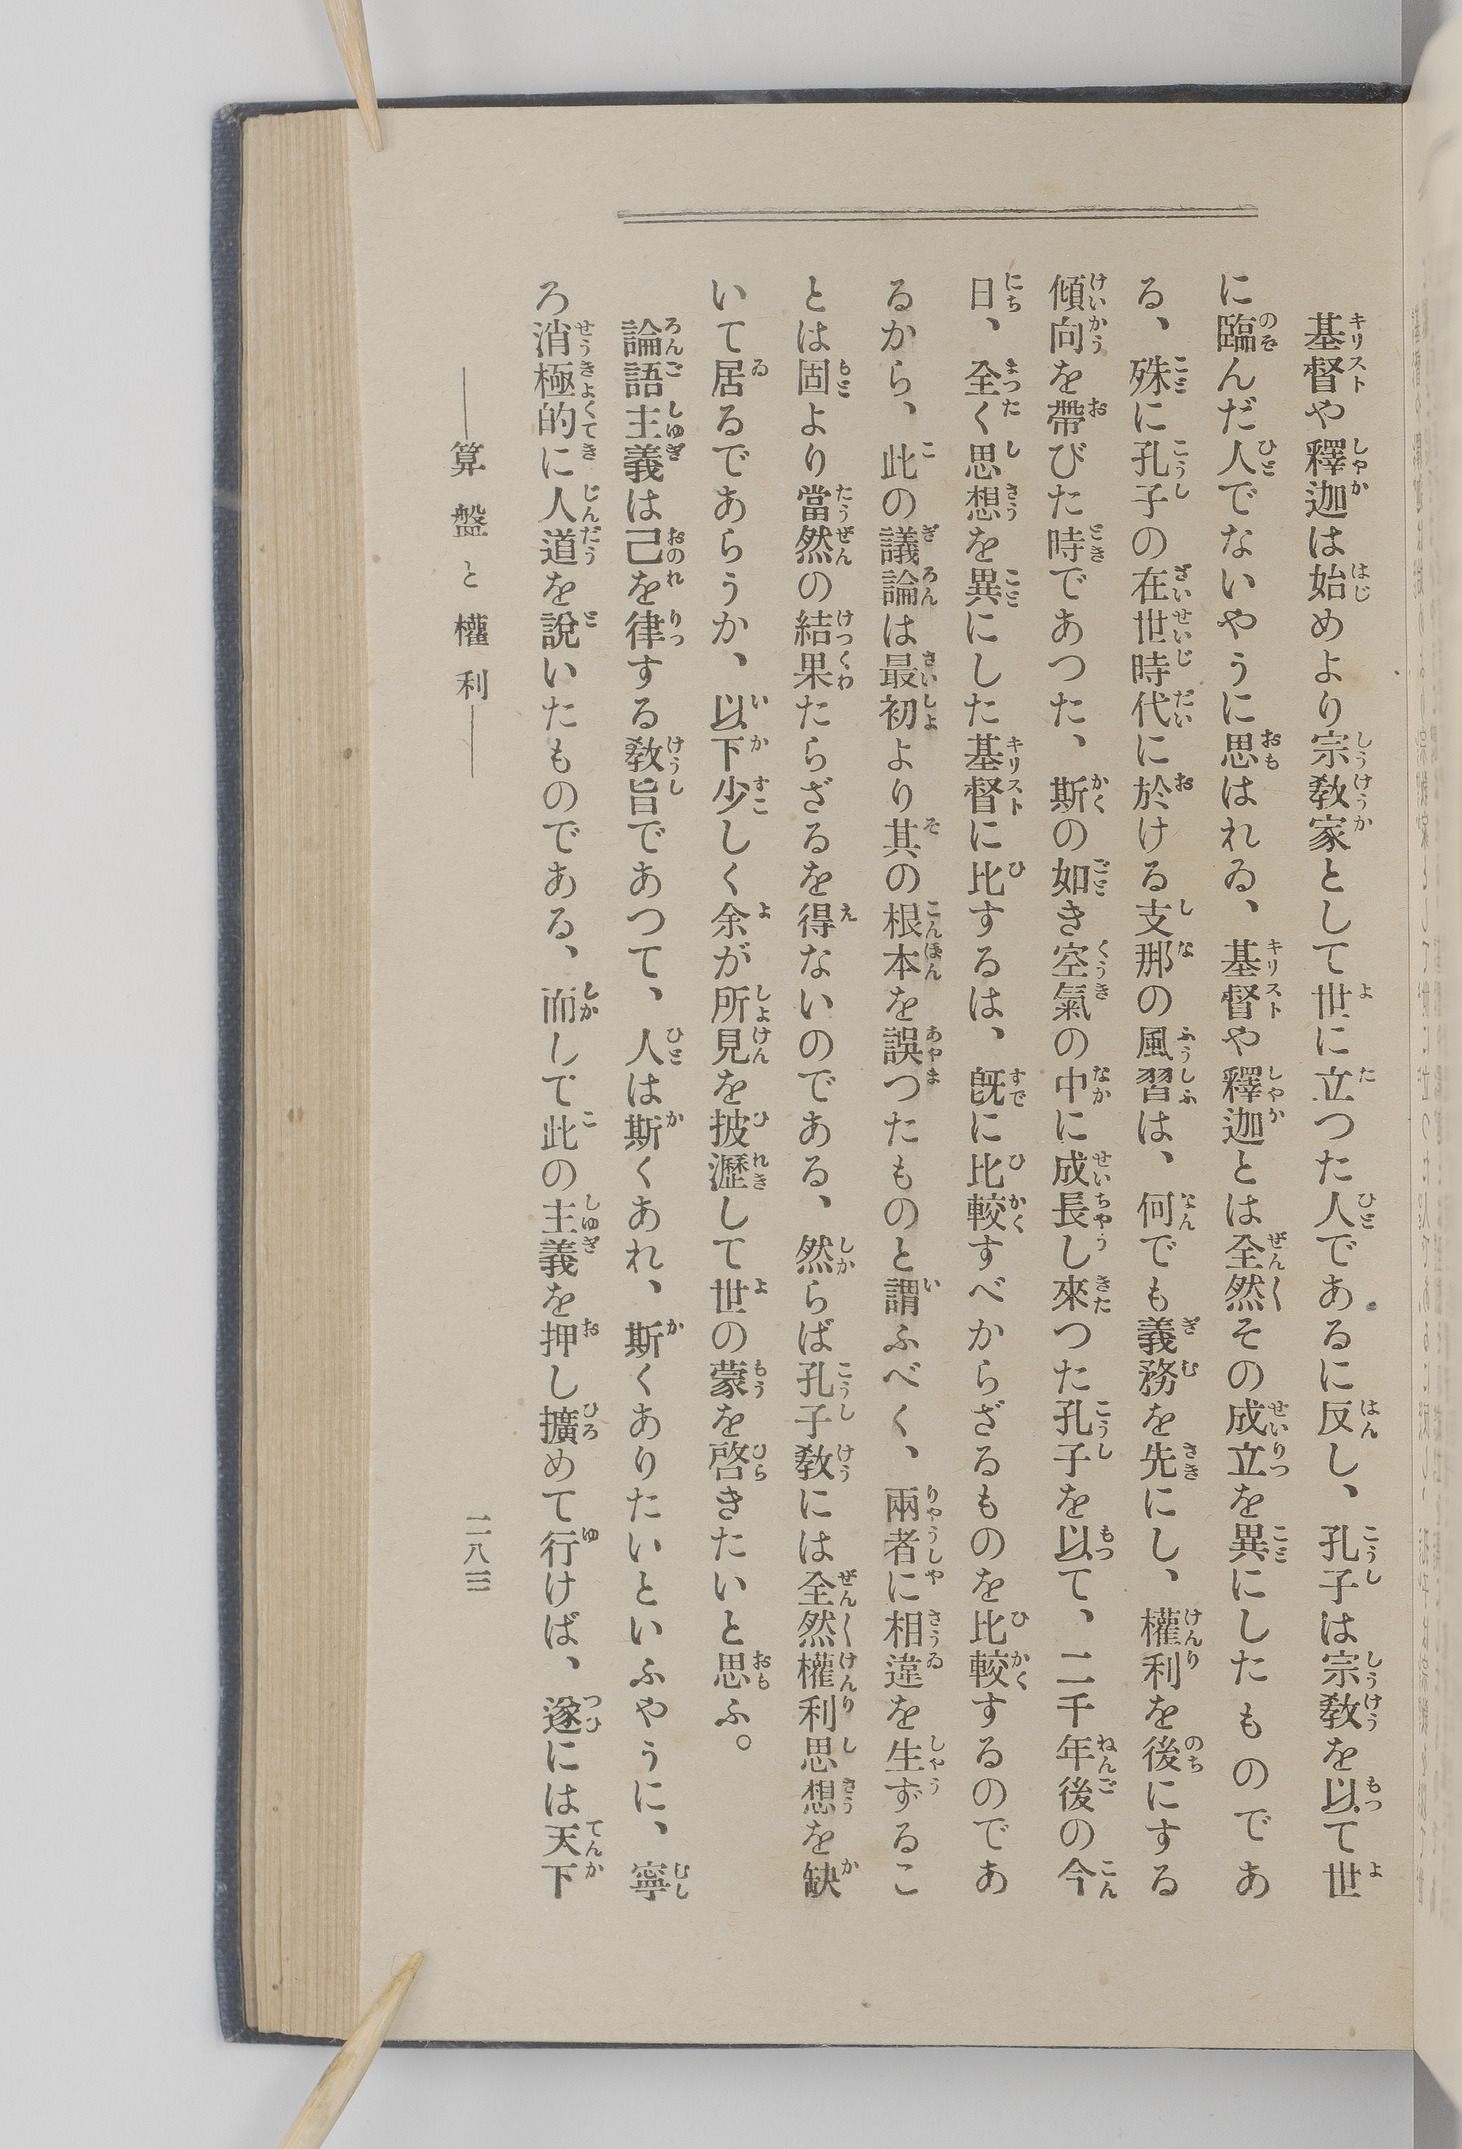 基督や釋迦は始めより宗敎家として世に立つた人であるに反し、孔子は宗敎を以て世
に臨んだ人でないやうに思はれる、基督や釋迦とは全然その成立を異にしたものであ
る、殊に孔子の在世時代に於ける支那の風習は、何でも義務を先にし、權利を後にする
傾向を帶びた時であつた、斯の如き空氣の中に成長し來つた孔子を以て、二千年後の今
日、全く思想を異にした基督に比するは、旣に比較すべからざるものを比較するのであ
るから、此の議論は最初より其の根本を誤つたものと謂ふべく、兩者に相違を生ずるこ
とは固より當然の結果たらざるを得ないのである、然らば孔子敎には全然權利思想を缺
いて居るであらうか、以下少しく余が所見を披瀝して世の蒙を啓きたいと思ふ。
論語主義は己を律する敎旨であつて、人は斯くあれ、斯くありたいといふやうに、寧
ろ消極的に人道を說いたものである、而して此の主義を押し擴めて行けば、遂には天下
――算盤と權利――
二八三